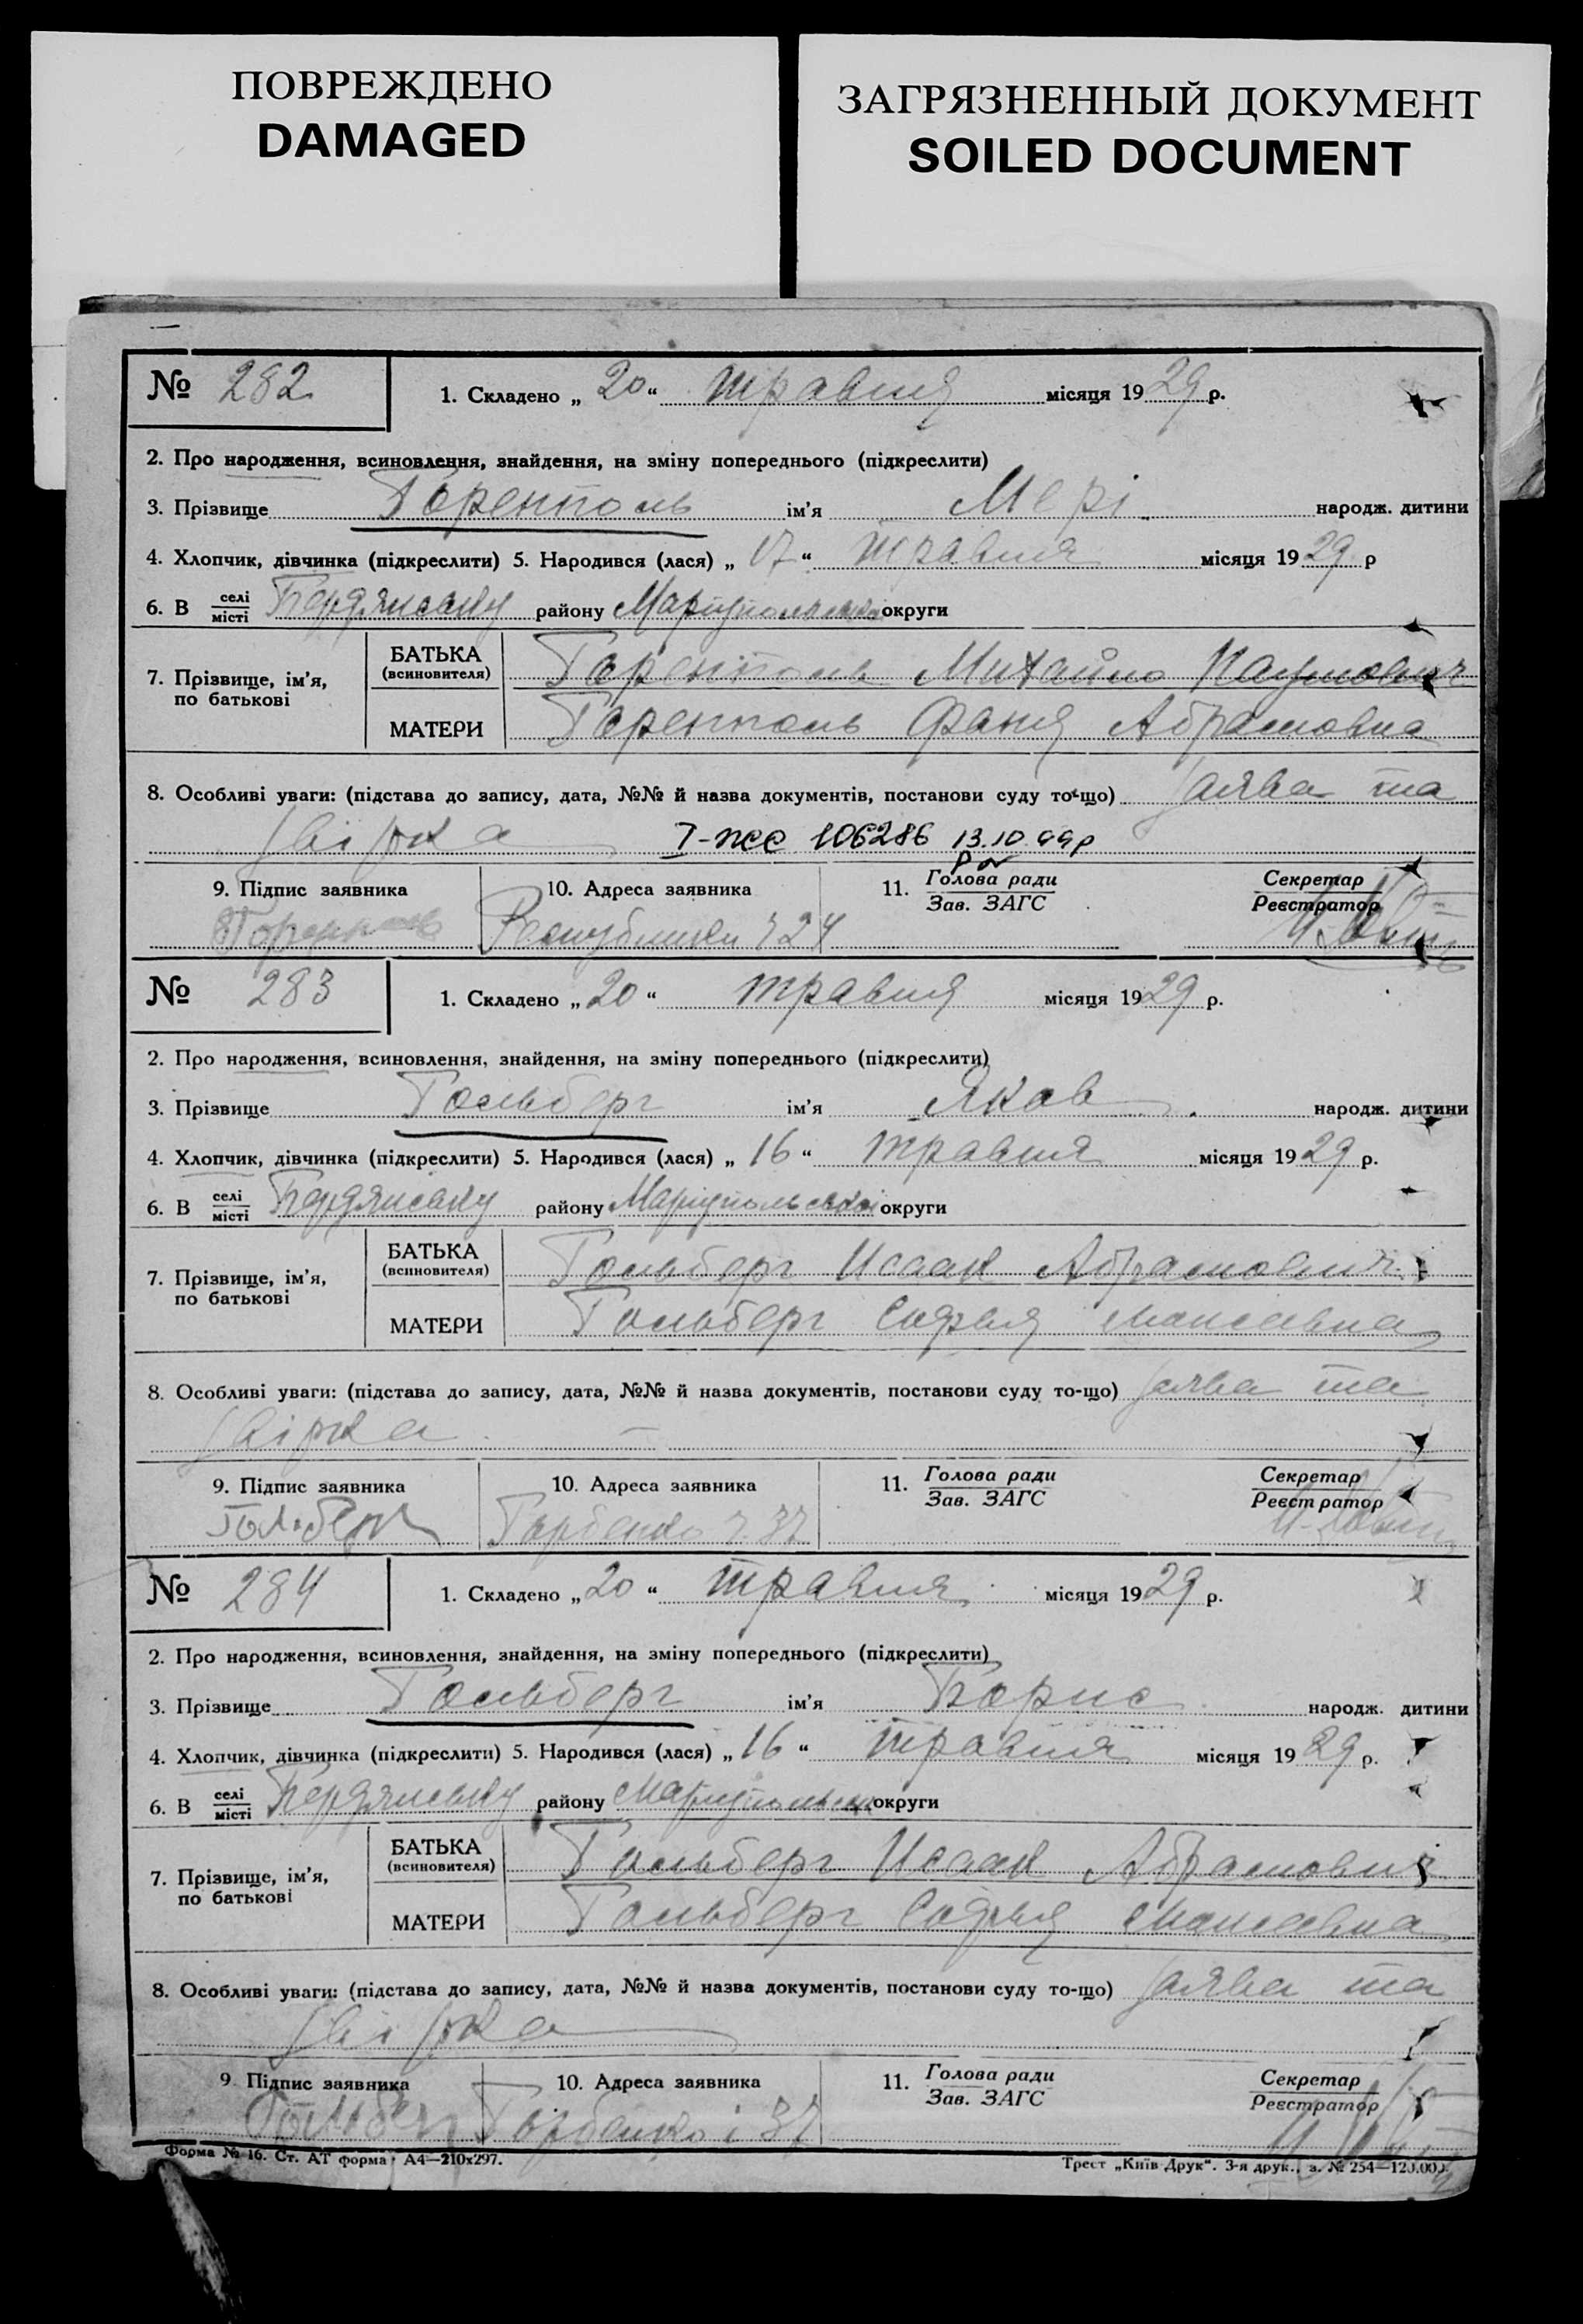 ПОВРЕЖДЕНО
DAMAGED
ЗАГРЯЗНЕННЫЙ ДОКУМЕНТ
SOILED DOCUMENT
№ 282 1. Складено „ 20 “ травня місяця 1929 р.
2. Про народження, всиновлення, знайдення, на зміну попереднього (підкреслити)
3. Прізвище Горенполь ім'я Мері народж. дитини
4. Хлопчик, дівчинка (підкреслити) 5. Народився (лася) „ 17 “ травня місяця 1929 р
6. В селі місті Бердянську району Маріупольської округи
7. Прізвище, ім'я, по батькові
БАТЬКА (всиновителя) Горенполь Михайло Наумович
МАТЕРИ Горенполь Фаня Абрамовна
8. Особливі уваги: (підстава до запису, дата, №№ й назва документів, постанови суду то-що) заява та
звірка I-ЖС 106286 13.10.99р
9. Підпис заявника 10. Адреса заявника 11. Голова ради Зав. ЗАГС Секретар Реєстратор
Республики 24
№ 283 1. Складено „ 20 “ травня місяця 1929 р.
2. Про народження, всиновлення, знайдення, на зміну попереднього (підкреслити)
3. Прізвище Гольберг ім'я Яков народж. дитини
4. Хлопчик, дівчинка (підкреслити) 5. Народився (лася) „ 16 “ травня місяця 1929 р.
6. В селі місті Бердянську району Маріупольської округи
7. Прізвище, ім'я, по батькові
БАТЬКА (всиновителя) Гольберг Исаак Абрамович
МАТЕРИ Гольберг Софья Моисеевна
8. Особливі уваги: (підстава до запису, дата, №№ й назва документів, постанови суду то-що) заява та
звірка
9. Підпис заявника 10. Адреса заявника 11. Голова ради Зав. ЗАГС Секретар Реєстратор
Гольберг Горбенко 37
№ 284 1. Складено „ 20 “ травня місяця 1929 р.
2. Про народження, всиновлення, знайдення, на зміну попереднього (підкреслити)
3. Прізвище Гольберг ім'я Борис народж. дитини
4. Хлопчик, дівчинка (підкреслити) 5. Народився (лася) „ 16 “ травня місяця 1929 р.
6. В селі місті Бердянську району Маріупольської округи
7. Прізвище, ім'я, по батькові
БАТЬКА (всиновителя) Гольберг Исаак Абрамович
МАТЕРИ Гольберг Софья Моисеевна
8. Особливі уваги: (підстава до запису, дата, №№ й назва документів, постанови суду то-що) заява та
звірка
9. Підпис заявника 10. Адреса заявника 11. Голова ради Зав. ЗАГС Секретар Реєстратор
Гольберг Горбенко 37
Форма № 16. Ст. АТ форма А4—210х297. Трест „Київ-Друк“. 3-я друк., з. № 254—120.000.